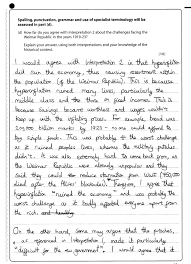 Spelling, punctuation, grammar and use of specialist terminology will be
assessed in part (d).
(d) How far do you agree with interpretation 2 about the challenges facing the
Weimar Republic in the years 1919-23?
Explain your answer, using both interpretations and your knowledge of the
historical context.
I would agree with Interpretation 2 in that hyperinflation
did ruin the economy, thus causing resentment within
the population (of the Weimar Republic). This is because
hyperinflation ruined many lives, particularly the
middle class and those on fixed incomes. This is
because savings became worthless and wages couldn't
keep up with the inflating prices. For example, bread was
200,000 billion marks by 1923 - so no one could afford to
buy simple goods. This was probably the worst challenge
as it ruined peoples lives, whereas the military putsches
didn't. It was also extremely hard
as the Weimar Republic was already unpopular and this
said they could not reduce starvation from WWI (750,000
died after the Allies' blockade). Therefore, I agree that
hyperinflation "ruined the economy" and was probably the
worst challenge as it badly affected everyone apart from
the rich
On the other hand, some may argue that the putsches,
as referenced in Interpretation 1, made it particularly
"difficult for the new government". I would agree that it